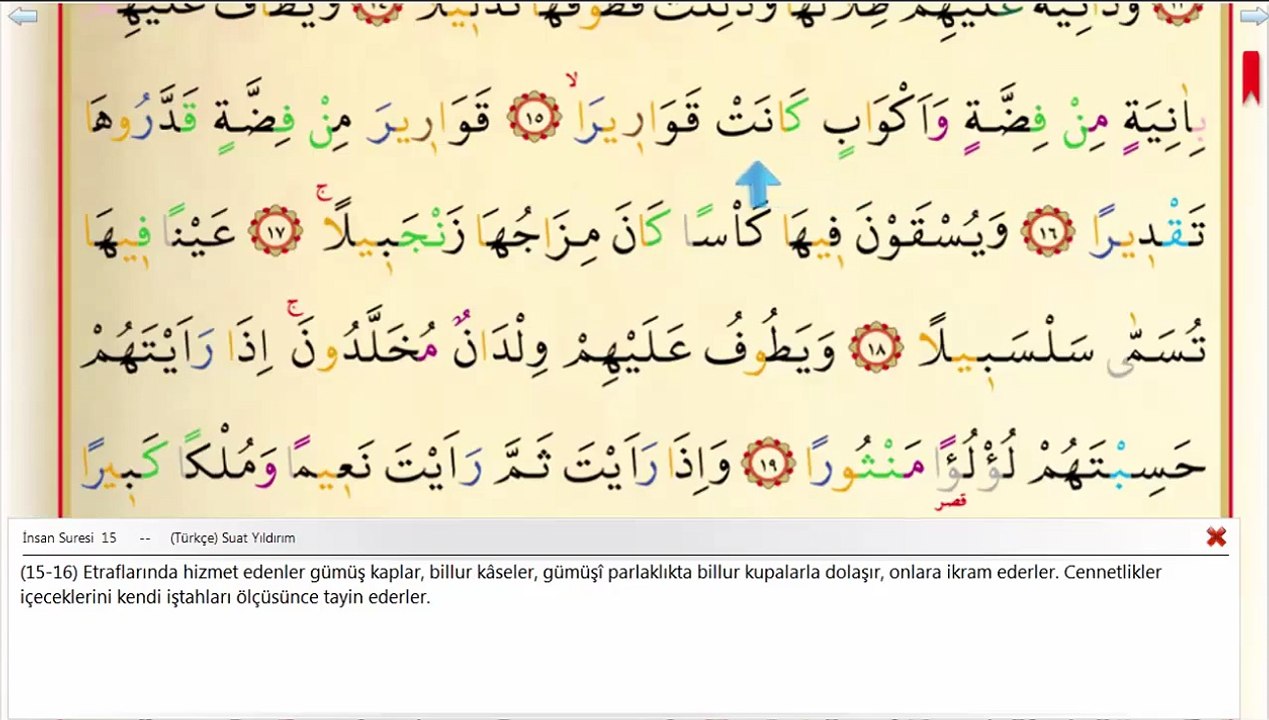 وَدَانِيَةً عَلَيْهِمْ ظِلَالُهَا وَذُلِّلَتْ قُطُوفُهَا تَذْلِيلًا ﴿١٤﴾ وَيُطَافُ عَلَيْهِمْ
بِاٰنِيَةٍ مِنْ فِضَّةٍ وَاَكْوَابٍ كَانَتْ قَوَارٖيرَا ۙ ﴿١٥﴾ قَوَارٖيرَ مِنْ فِضَّةٍ قَدَّرُوهَا
تَقْدٖيرًا ﴿١٦﴾ وَيُسْقَوْنَ فٖيهَا كَأْسًا كَانَ مِزَاجُهَا زَنْجَبٖيلًا ۚ ﴿١٧﴾ عَيْنًا فٖيهَا
تُسَمّٰى سَلْسَبٖيلًا ﴿١٨﴾ وَيَطُوفُ عَلَيْهِمْ وِلْدَانٌ مُخَلَّدُونَ ۚ اِذَا رَاَيْتَهُمْ
حَسِبْتَهُمْ لُؤْلُؤًا مَنْثُورًا ﴿١٩﴾ وَاِذَا رَاَيْتَ ثَمَّ رَاَيْتَ نَعٖيمًا وَمُلْكًا كَبٖيرًا
قصر
İnsan Suresi 15 -- (Türkçe) Suat Yıldırım
(15-16) Etraflarında hizmet edenler gümüş kaplar, billur kâseler, gümüşî parlaklıkta billur kupalarla dolaşır, onlara ikram ederler. Cennetlikler
içeceklerini kendi iştahları ölçüsünce tayin ederler.